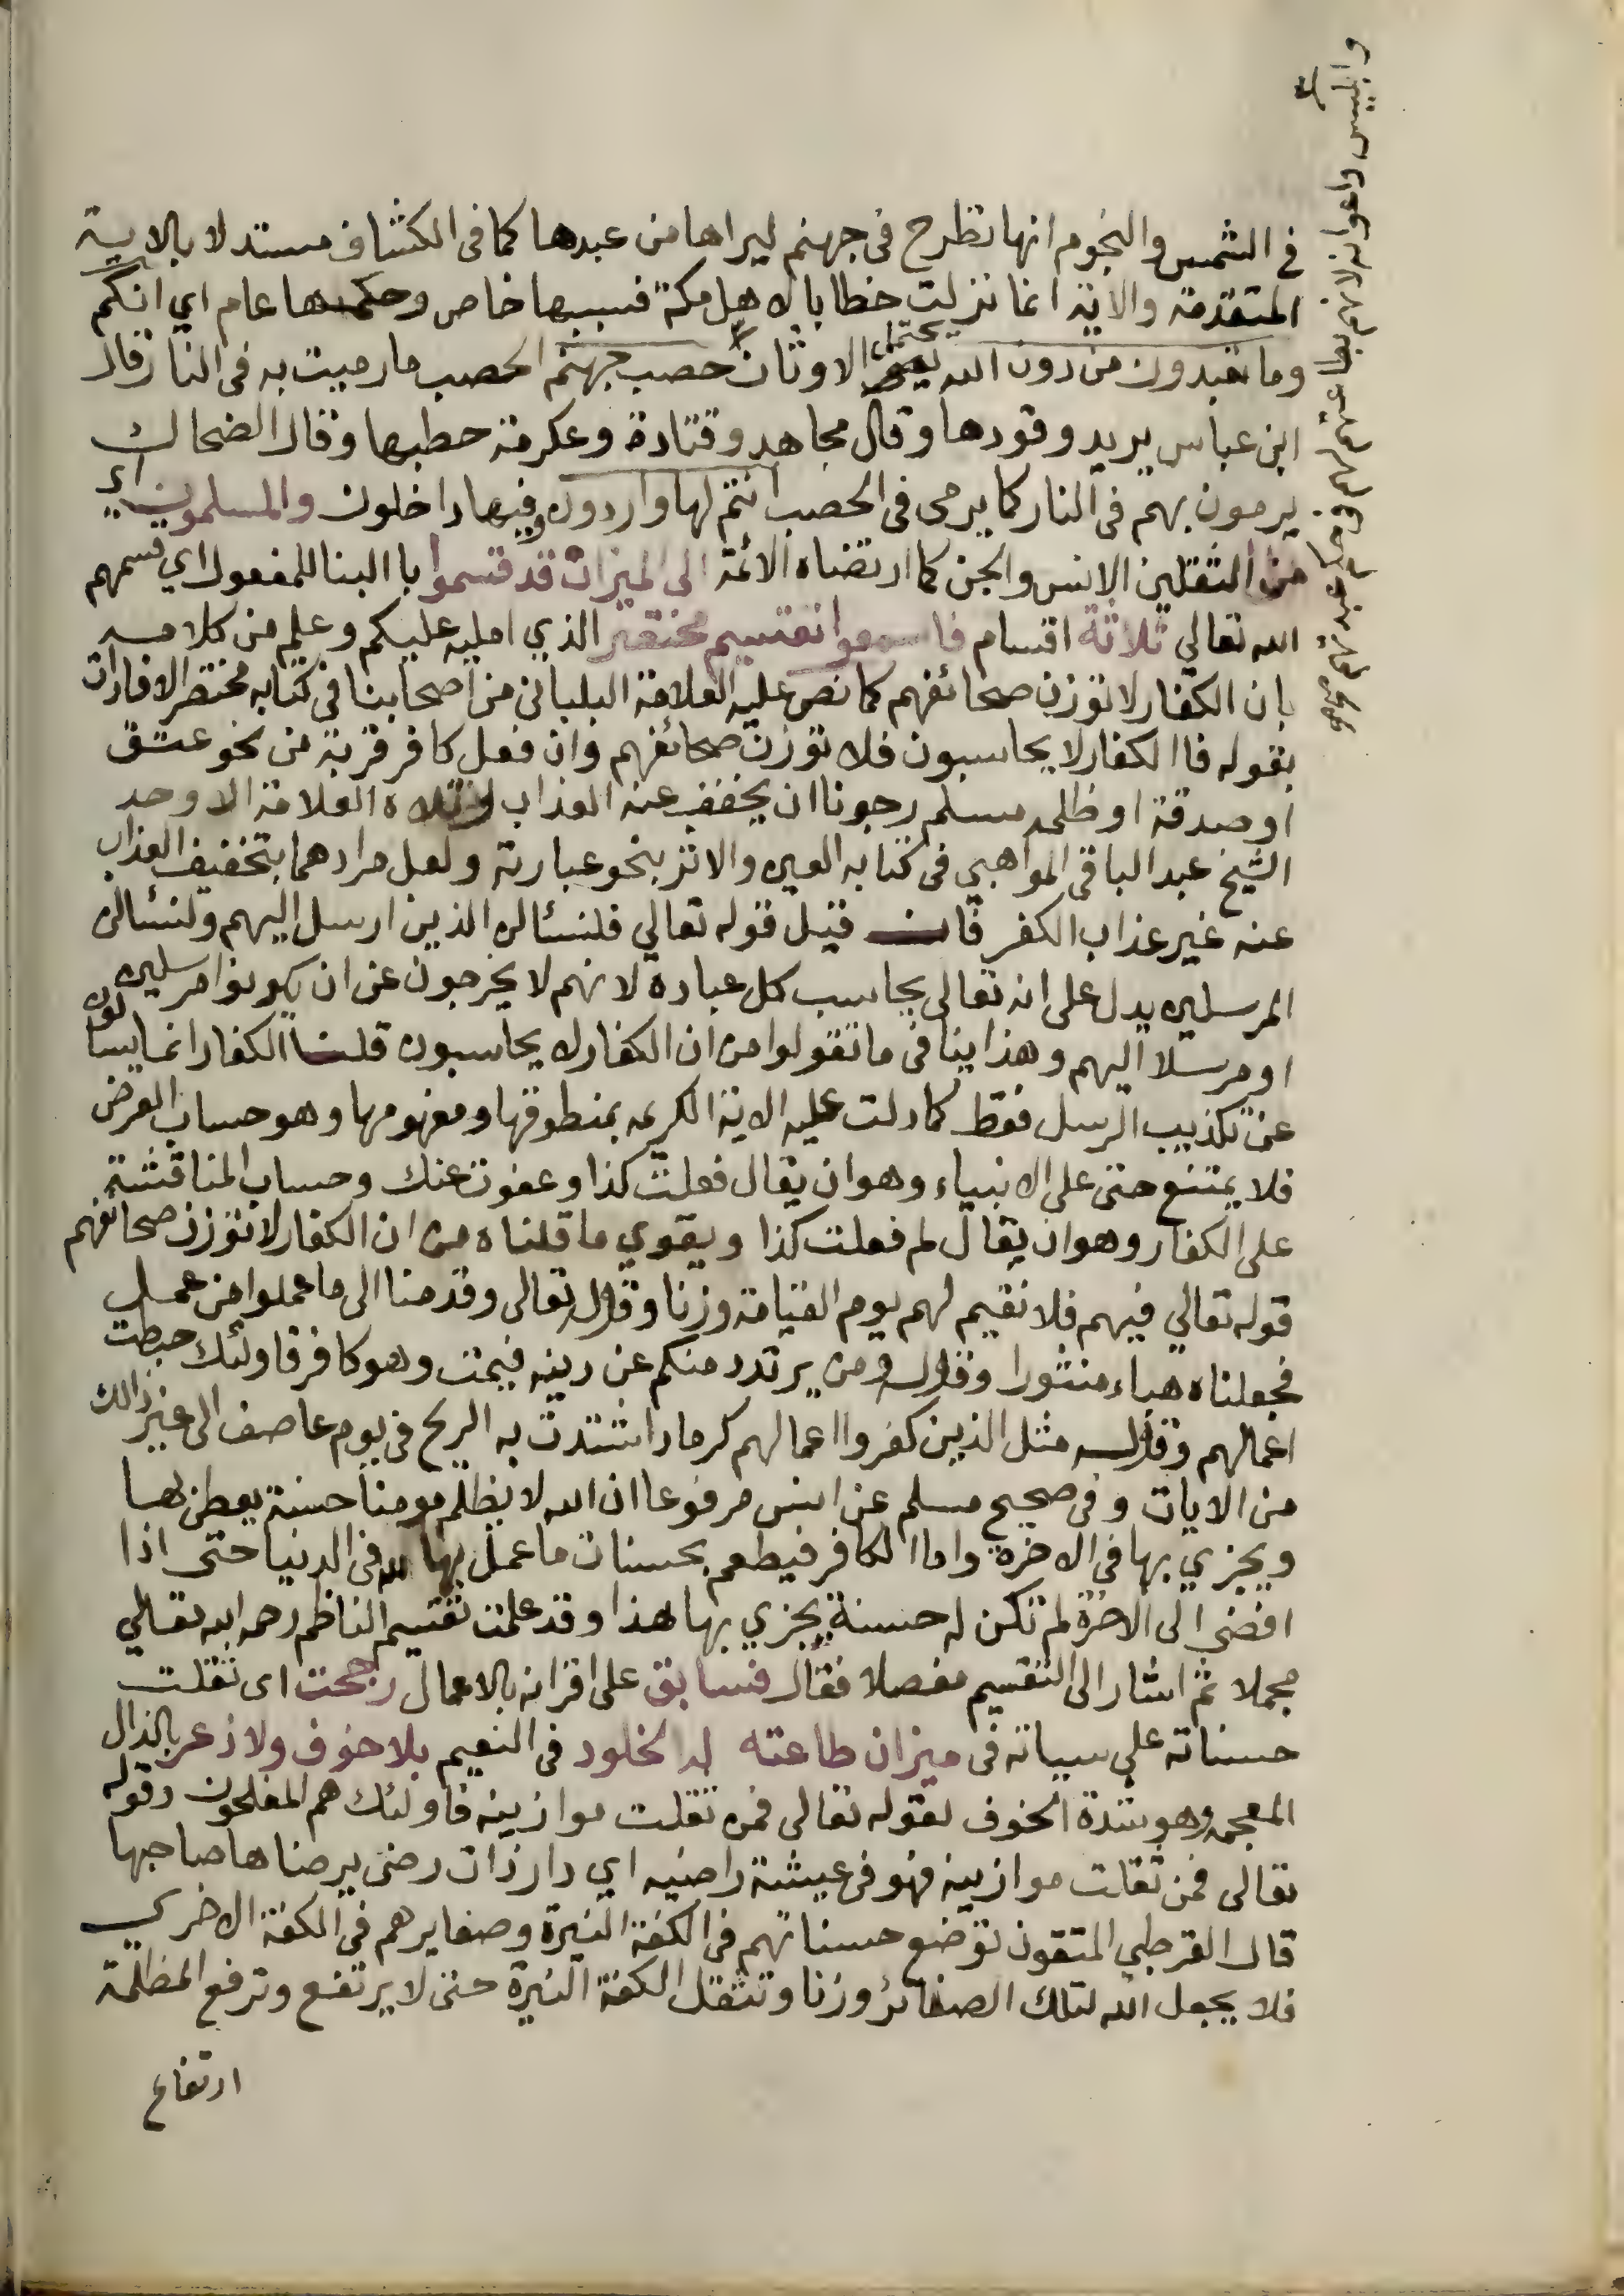 في الشمس والنجوم انها تطرح في جهنم ليراها من عبدها كما في الكشاف مستدلا بالاية
المتقدمة والاية انما نزلت خطابا لاهل مكة فسببها خاص وحكمها عام اي انكم
وما تعبدون من دون الله يحتمل الاوثان حصب جهنم الحصب ما رميت به في النار قال
ابن عباس يريد وقودها وقال مجاهد وقتادة وعكرمة حطبها وقال الضحاك
يرمون بهم في النار كما يرمى في الحصب انتم لها واردون وفيها داخلون والمسلمون اي
من الثقلين الانس والجن كما ارتضاه الائمة الى الميزان قد قسموا با البنا للمفعول اي قسمهم
الله تعالي ثلاثة اقسام فاسمعوا تقسيم مختصر الذي امليه عليكم وعلم من كلامه
بان الكفار لا توزن صحائفهم كما نص عليه العلامة البلباني من اصحابنا في كتابه مختصر الافادات
بقوله فا الكفار لا يحاسبون فلا توزن صحائفهم وان فعل كافر قربة من نحو عتق
او صدقة او ظلمه مسلم رجونا ان يخفف عنه العذاب وتلاه العلامة الاوحد
الشيخ عبد الباقي المواهبي في كتابه العين والاثر بنحو عبارته ولعل مرادهما بتخفيف العذاب
عنه غير عذاب الكفر فان قيل قوله تعالي فلنسئالن الذين ارسل اليهم ولنسئالن
المرسلين يدل على انه تعالى يحاسب كل عباده لانهم لا يخرجون عن ان يكونوا مرسلين
او مرسلا اليهم وهذا ينافي ما تقولوا من ان الكفار لا يحاسبون قلنا الكفار انما يسالون
عن تكذيب الرسل فقط كما دلت عليه الاية الكريمه بمنطوقها ومفهومها وهو حساب العرض
فلا يمتنع حتى على الانبياء وهو ان يقال فعلت كذا وعفوت عنك وحساب المناقشة
على الكفار وهو ان يقال لم فعلت كذا ويقوي ما قلناه من ان الكفار لا توزن صحائفهم
قوله تعالي فيهم فلا نقيم لهم يوم القيامة وزنا وقوله تعالى وقدمنا الى ما عملوا من عمل
فجعلناه هباء منثورا وقوله ومن يرتدد منكم عن دينه فيمت وهو كافر فاولئك حبطت
اعمالهم وقوله مثل الذين كفروا اعمالهم كرماد اشتدت به الريح في يوم عاصف الى غير ذالك
من الايات وفي صحيح مسلم عن انس مرفوعا ان الله لا يظلم مومنا حسنة يعطى بها
ويجزي بها في الاخرة واما الكافر فيطعم بحسنات ما عمل بها لله في الدنيا حتى اذا
افضى الى الاخرة لم تكن له حسنة يجزي بها هذا وقد علمت تقسيم الناظم رحمه الله تعالي
مجملا ثم اشار الى التقسيم مفصلا فقال فسابق على اقرانه بالاعمال رجحت اى ثقلت
حسناته على سيياته في ميزان طاعته له الخلود في النعيم بلا خوف ولا ذعر بالذال
المعجمه وهو شدة الخوف لقوله تعالى فمن ثقلت موازينه فاولئك هم المفلحون وقوله
تعالى فمن ثقلت موازينه فهو في عيشة راضيه اي دار ذات رضى يرضاها صاحبها
قال القرطبي المتقون توضع حسناتهم في الكفة النيرة وصغايرهم في الكفة الاخري
فلا يجعل الله لتلك الصغائر وزنا وتثقل الكفة النيرة حتى لا يرتفع وترفع المظلمة
ارتفاع
وابليس واعوانه لانهم بطاعتهم لهم في حكم عبدتهم